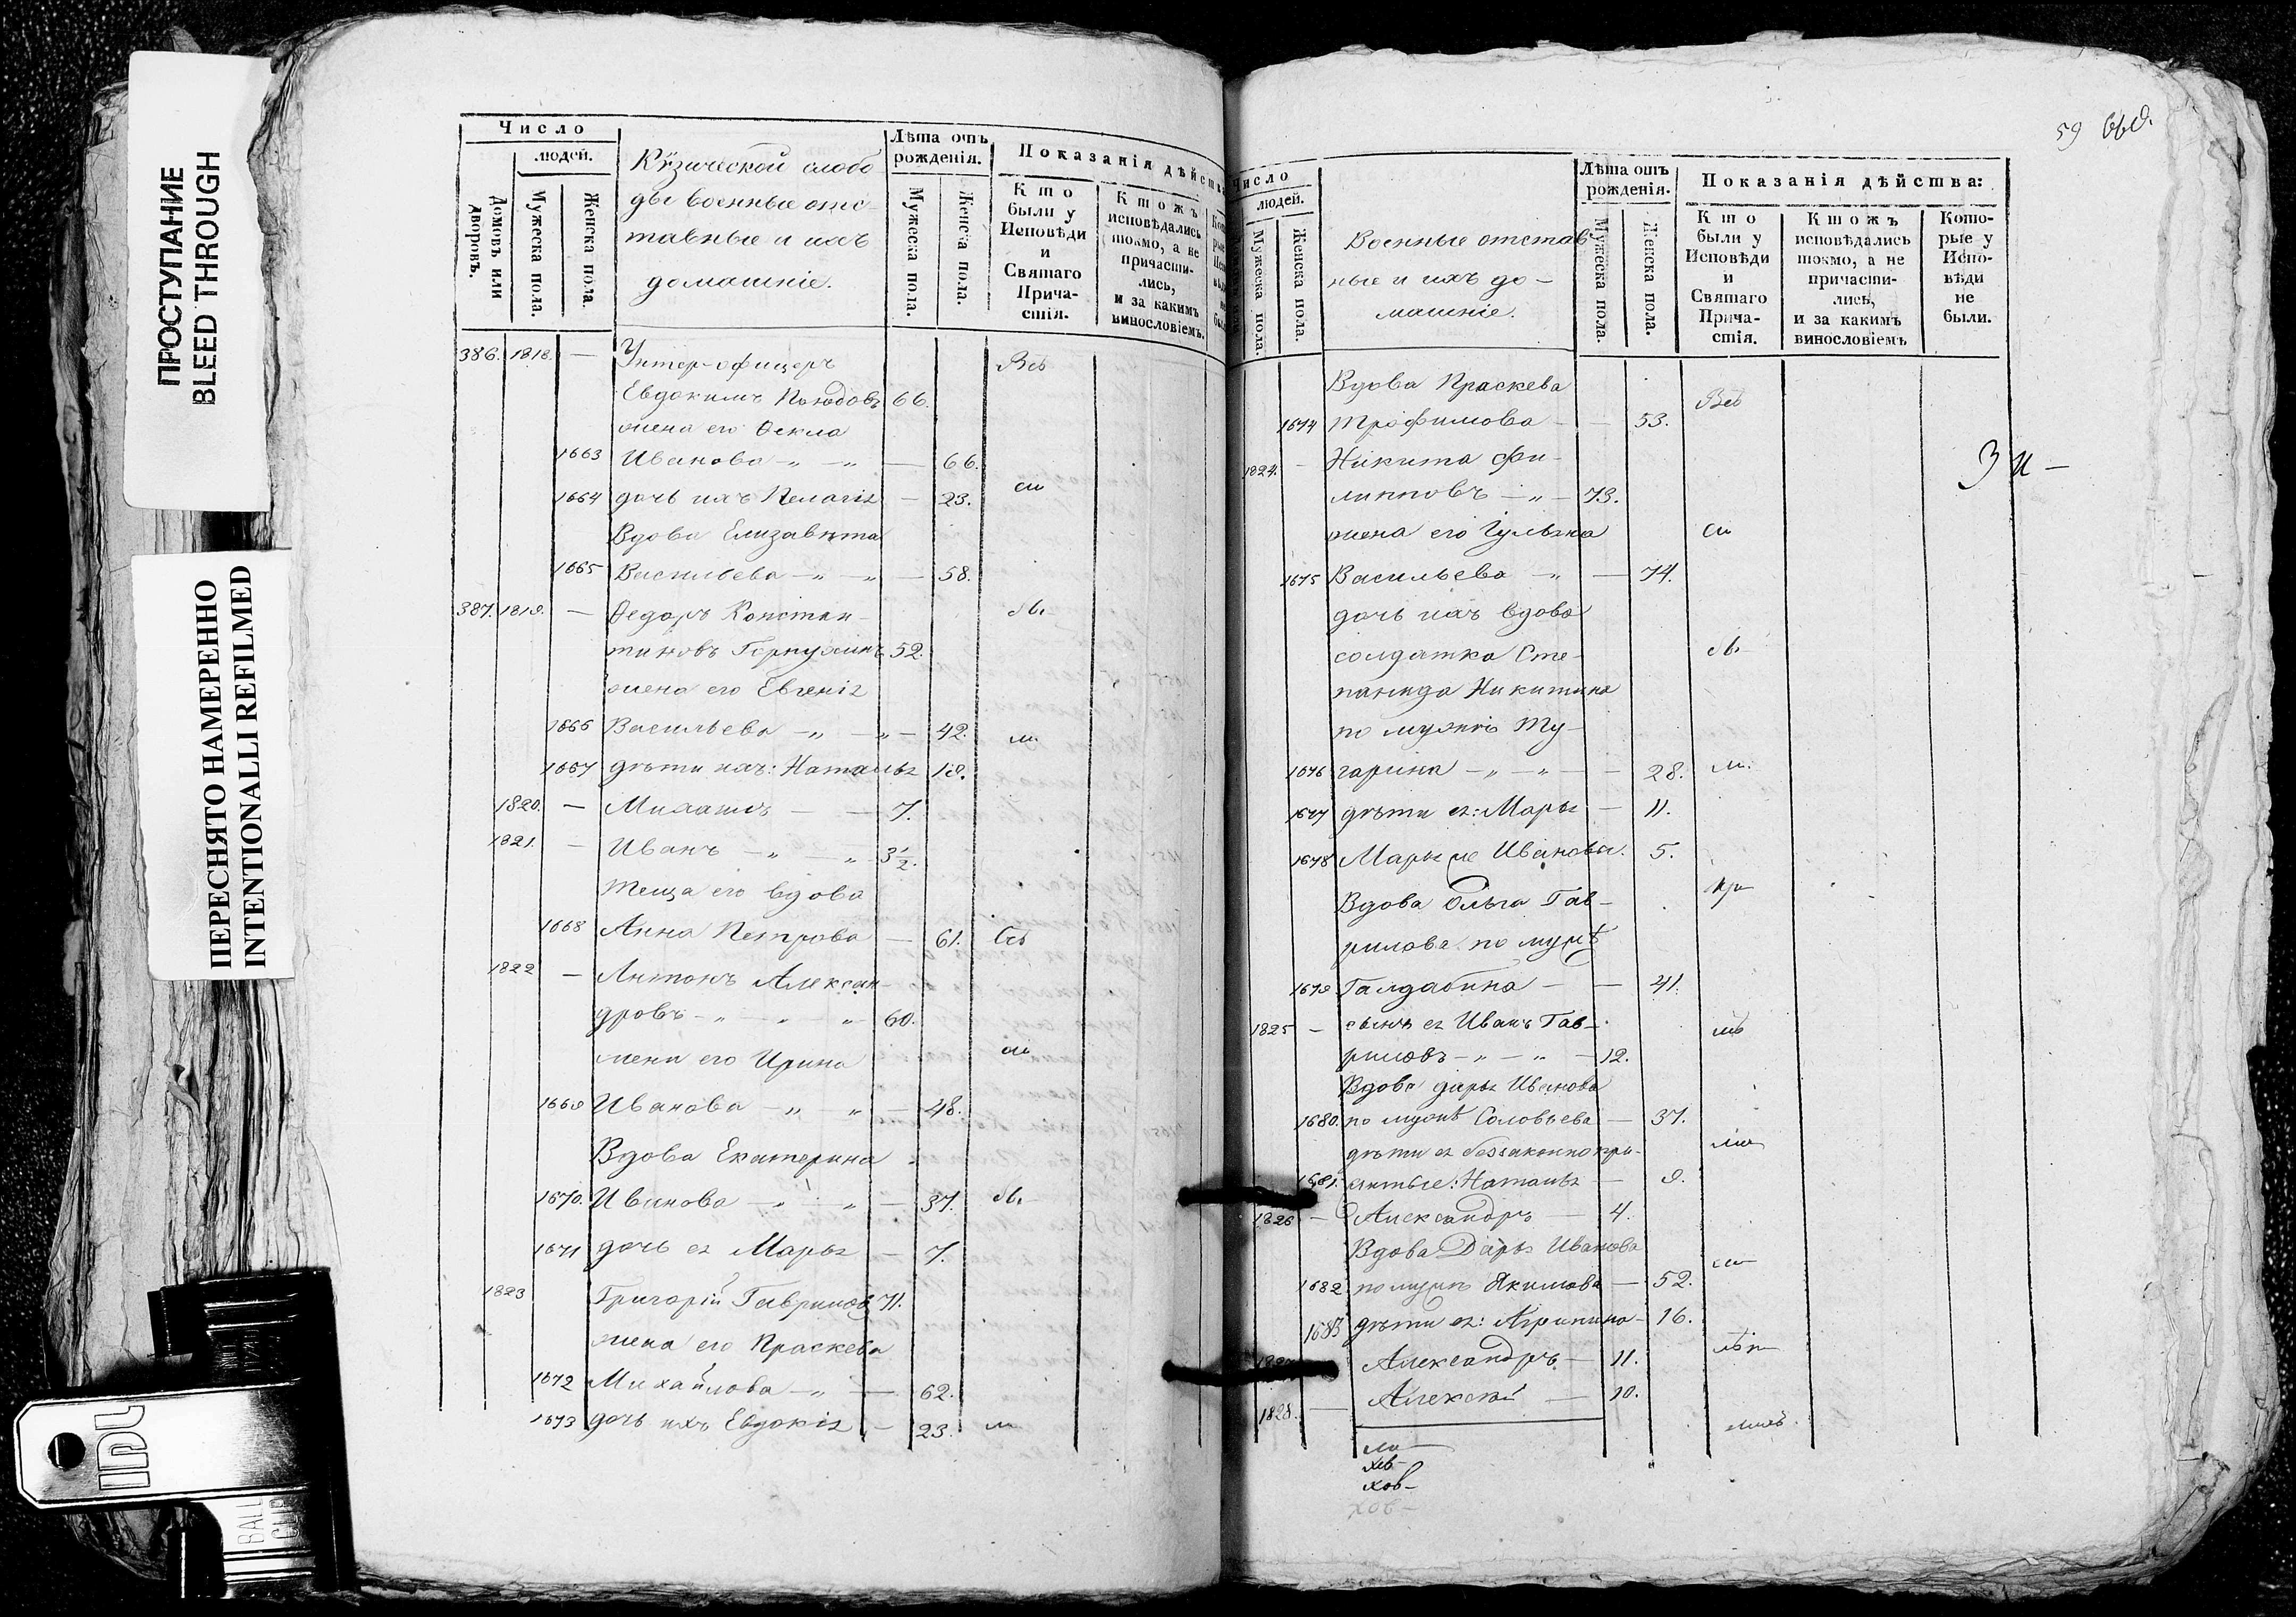 ПРОСТУПАНИЕ
BLEED THROUGH
ПЕРЕСНЯТО НАМЕРЕННО
INTENTIONALLI REFILMED
Число
людей.
Домовъ или дворовъ.
Мужеска пола.
Женска пола.
Кузической слобо
ды военные отс-
тавные и ихъ
домашніе.
Лѣта отъ рожденія.
Мужеска пола.
Женска пола.
Показанія дѣйства
Кто были у Исповѣди и Святаго Прича-стія.
Ктожъ исповѣдались токмо, а не причасти-лись, и за какимъ винословіемъ.
386. 1818. — Унтер-офицеръ
Евдокимъ 66.
жена его Ѳекла
1663 Иванова — 66.
1664 дочь ихъ Пелагія — 23.
Вдова Елизавета
1665 Васильева — 58.
387. 1819. — Ѳедоръ Констан-
тиновъ 52.
жена его Евгенія
1666 Васильева — 42.
1667 дѣти ихъ: Наталья 19.
1820. — Михаилъ — 7.
1821. — Иванъ — 3 1/2.
теща его вдова
1668 Анна Петрова — 61.
1822 — Антонъ Алексан-
дровъ — 60.
жена его Ирина
1669 Иванова — 48.
Вдова Екатерина
1670. Иванова — 37.
1671 дочь ея Марья — 7.
1823 Григорій Гавриловъ 71.
жена его Праскева
1672 Михайлова — 62.
1673 дочь ихъ Евдокія — 23.
59
Число
людей.
Мужеска пола.
Женска пола.
Военные отстав
ные и ихъ до-
машніе.
Лѣта отъ рожденія.
Мужеска пола.
Женска пола.
Показанія дѣйства:
Кто были у Исповѣди и Святаго Прича-стія.
Ктожъ исповѣдались токмо, а не причасти-лись, и за какимъ винословіемъ
Кото-рые у Испо-вѣди не были.
Вдова Праскева
1674 Трофимова — 53.
1824. — Никита Фи-
липповъ — 73.
жена его Гульяна
1675 Васильева — 74.
дочь ихъ вдова
солдатка Сте-
панида Никитина
по мужѣ Ту-
1676 гарина — 28.
1677 дѣти ея: Марья — 11.
1678 Марья же Ивановы. 5.
Вдова Ольга Гав-
рилова по мужѣ
1679 Галдабина — 41.
1825 — сынъ ея Иванъ Гав-
риловъ — 12.
Вдова Дарья Иванова
1680. по мужѣ Соловьева — 37.
дѣти ея беззаконнопри-
1681. житые: Наталья — 9.
1826 — Александръ — 4.
Вдова Дарья Иванова
1682 по мужѣ Якимова — 52.
1683 дѣти ея: Агрипина — 16.
1827 Александръ — 11.
1828. — Алексѣй — 10.